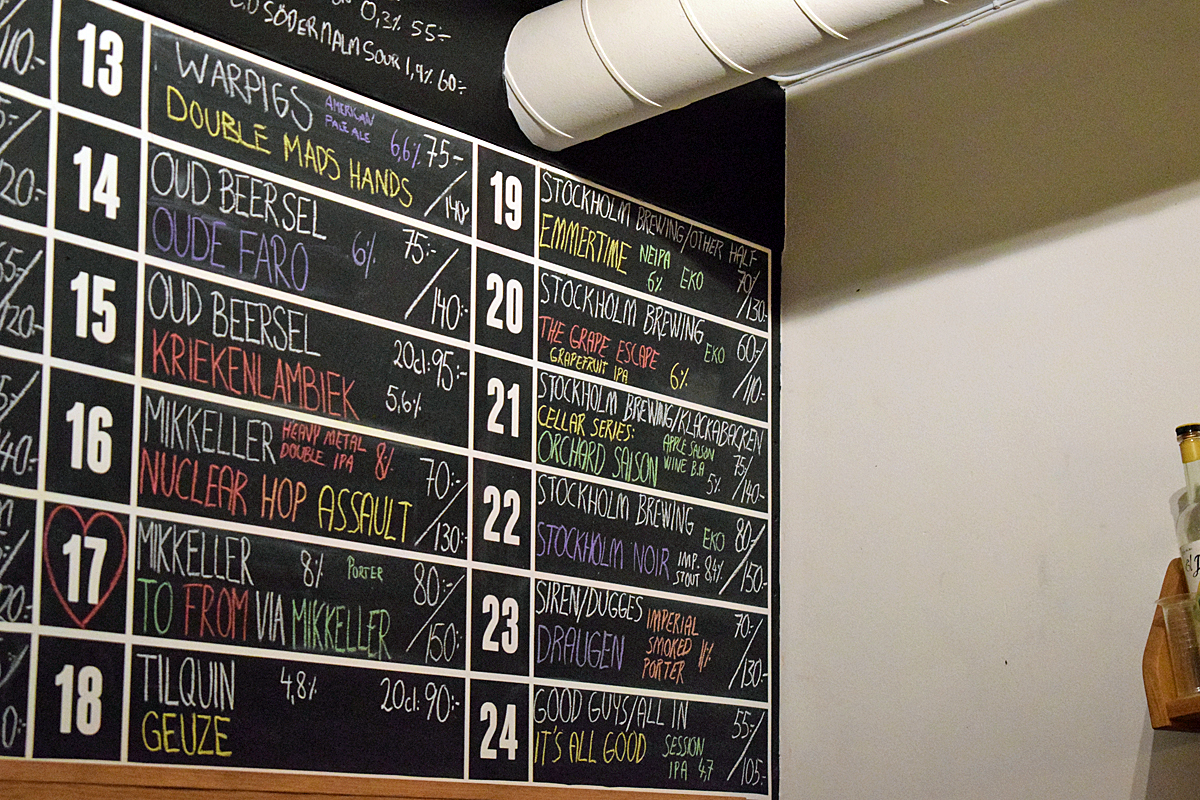 0,3% 55:-
SÖDERMALM SOUR 1,9% 60:-
13
WARPIGS AMERICAN PALE ALE 6,6% 75:-
DOUBLE MADS HANDS /140:-
14
OUD BEERSEL 75:-
OUDE FARO 6% /140:-
15
OUD BEERSEL 20cl: 95:-
KRIEKENLAMBIEK 5,6%
16
MIKKELLER HEAVY METAL DOUBLE IPA 8% 70:-
NUCLEAR HOP ASSAULT /130:-
17
MIKKELLER 8% PORTER 80:-
TO FROM VIA MIKKELLER /150:-
18
TILQUIN 4,8% 20cl: 90:-
GEUZE
19
STOCKHOLM BREWING/OTHER HALF
EMMERTIME NEIPA 6% EKO 70/130:-
20
STOCKHOLM BREWING EKO 60:-
THE GRAPE ESCAPE /110:-
GRAPEFRUIT IPA 6%
21
STOCKHOLM BREWING/KLACKABACKEN
CELLAR SERIES: APPLE SAISON 75/
ORCHARD SAISON WINE B.A 5% 140:-
22
STOCKHOLM BREWING EKO 80:-
STOCKHOLM NOIR IMP. STOUT 8,4% /150:-
23
SIREN/DUGGES IMPERIAL 70:-
DRAUGEN SMOKED PORTER 11% /130:-
24
GOOD GUYS/ALL IN 55:-
IT'S ALL GOOD SESSION IPA 4,7 /105:-